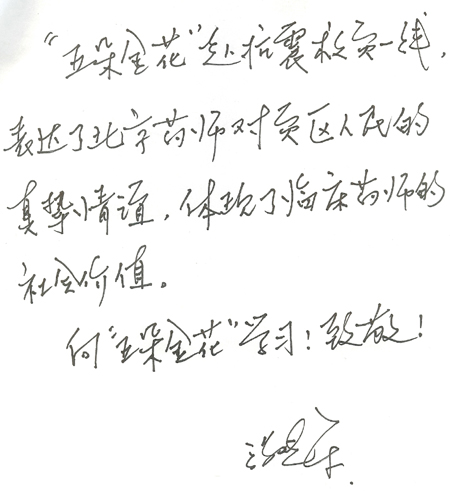 “五朵金花”赴抗震救灾一线，
表达了北京药师对灾区人民的
真挚情谊，体现了临床药师的
社会价值。
向“五朵金花”学习！致敬！